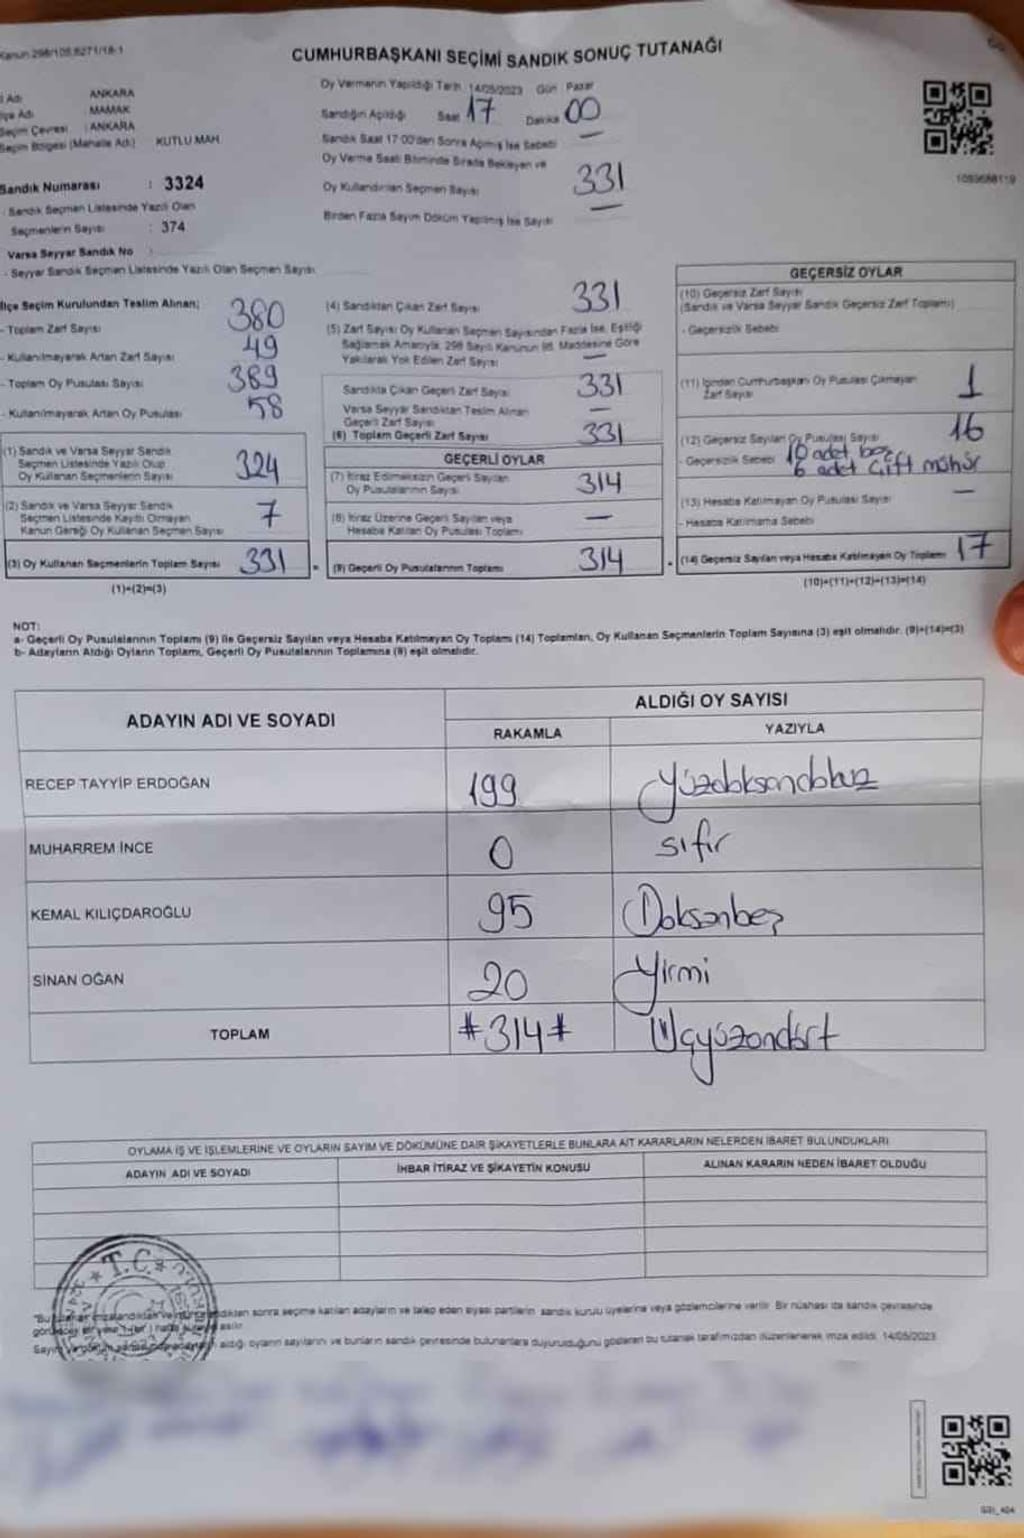 Kanun 298/105,6271/18-1
CUMHURBAŞKANI SEÇİMİ SANDIK SONUÇ TUTANAĞI
İl Adı ANKARA
İlçe Adı MAMAK
Seçim Çevresi : ANKARA
Seçim Bölgesi (Mahalle Adı) KUTLU MAH.
Sandık Numarası : 3324
- Sandık Seçmen Listesinde Yazılı Olan
Seçmenlerin Sayısı : 374
Varsa Seyyar Sandık No :
- Seyyar Sandık Seçmen Listesinde Yazılı Olan Seçmen Sayısı
Oy Vermenin Yapıldığı Tarih 14/05/2023 Gün Pazar
Sandığın Açıldığı Saat 17 Dakika 00
Sandık Saat 17:00'den Sonra Açılmış İse Sebebi —
Oy Verme Saati Bitiminde Sırada Bekleyen ve
Oy Kullandırılan Seçmen Sayısı 331
Birden Fazla Sayım Döküm Yapılmış İse Sayısı —
1093688119
İlçe Seçim Kurulundan Teslim Alınan;
- Toplam Zarf Sayısı 380
- Kullanılmayarak Artan Zarf Sayısı 49
- Toplam Oy Pusulası Sayısı 389
- Kullanılmayarak Artan Oy Pusulası 58
(1) Sandık ve Varsa Seyyar Sandık
Seçmen Listesinde Yazılı Olup
Oy Kullanan Seçmenlerin Sayısı 324
(2) Sandık ve Varsa Seyyar Sandık
Seçmen Listesinde Kayıtlı Olmayan
Kanun Gereği Oy Kullanan Seçmen Sayısı 7
(3) Oy Kullanan Seçmenlerin Toplam Sayısı 331
(1)+(2)=(3)
(4) Sandıktan Çıkan Zarf Sayısı 331
(5) Zarf Sayısı Oy Kullanan Seçmen Sayısından Fazla İse, Eşitliği
Sağlamak Amacıyla, 298 Sayılı Kanunun 98. Maddesine Göre
Yakılarak Yok Edilen Zarf Sayısı —
Sandıkta Çıkan Geçerli Zarf Sayısı 331
Varsa Seyyar Sandıktan Teslim Alınan
Geçerli Zarf Sayısı —
(6) Toplam Geçerli Zarf Sayısı 331
GEÇERLİ OYLAR
(7) İtiraz Edilmeksizin Geçerli Sayılan
Oy Pusulalarının Sayısı 314
(8) İtiraz Üzerine Geçerli Sayılan veya
Hesaba Katılan Oy Pusulası Toplamı —
(9) Geçerli Oy Pusulalarının Toplamı 314
GEÇERSİZ OYLAR
(10) Geçersiz Zarf Sayısı
(Sandık ve Varsa Seyyar Sandık Geçersiz Zarf Toplamı)
- Geçersizlik Sebebi
(11) İçinden Cumhurbaşkanı Oy Pusulası Çıkmayan
Zarf Sayısı 1
(12) Geçersiz Sayılan Oy Pusulası Sayısı 16
- Geçersizlik Sebebi 10 adet boş
6 adet Çift mühür
(13) Hesaba Katılmayan Oy Pusulası Sayısı —
- Hesaba Katılmama Sebebi
(14) Geçersiz Sayılan veya Hesaba Katılmayan Oy Toplamı 17
(10)+(11)+(12)+(13)=(14)
NOT:
a- Geçerli Oy Pusulalarının Toplamı (9) ile Geçersiz Sayılan veya Hesaba Katılmayan Oy Toplamı (14) Toplamları, Oy Kullanan Seçmenlerin Toplam Sayısına (3) eşit olmalıdır. (9)+(14)=(3)
b- Adayların Aldığı Oyların Toplamı, Geçerli Oy Pusulalarının Toplamına (9) eşit olmalıdır.
ADAYIN ADI VE SOYADI
ALDIĞI OY SAYISI
RAKAMLA YAZIYLA
RECEP TAYYİP ERDOĞAN 199 Yüzdoksandokuz
MUHARREM İNCE 0 sıfır
KEMAL KILIÇDAROĞLU 95 Doksanbeş
SİNAN OĞAN 20 Yirmi
TOPLAM #314# Üçyüzondört
OYLAMA İŞ VE İŞLEMLERİNE VE OYLARIN SAYIM VE DÖKÜMÜNE DAİR ŞİKAYETLERLE BUNLARA AİT KARARLARIN NELERDEN İBARET BULUNDUKLARI
ADAYIN ADI VE SOYADI İHBAR İTİRAZ VE ŞİKAYETİN KONUSU ALINAN KARARIN NEDEN İBARET OLDUĞU
T.C.
sonra seçime katılan adayların ve talep eden siyasi partilerin sandık kurulu üyelerine veya gözlemcilerine verilir. Bir nüshası da sandık çevresinde
asılır.
aldığı oyların sayılarını ve bunların sandık çevresinde bulunanlara duyurulduğunu gösteren bu tutanak tarafımızdan düzenlenerek imza edildi. 14/05/2023